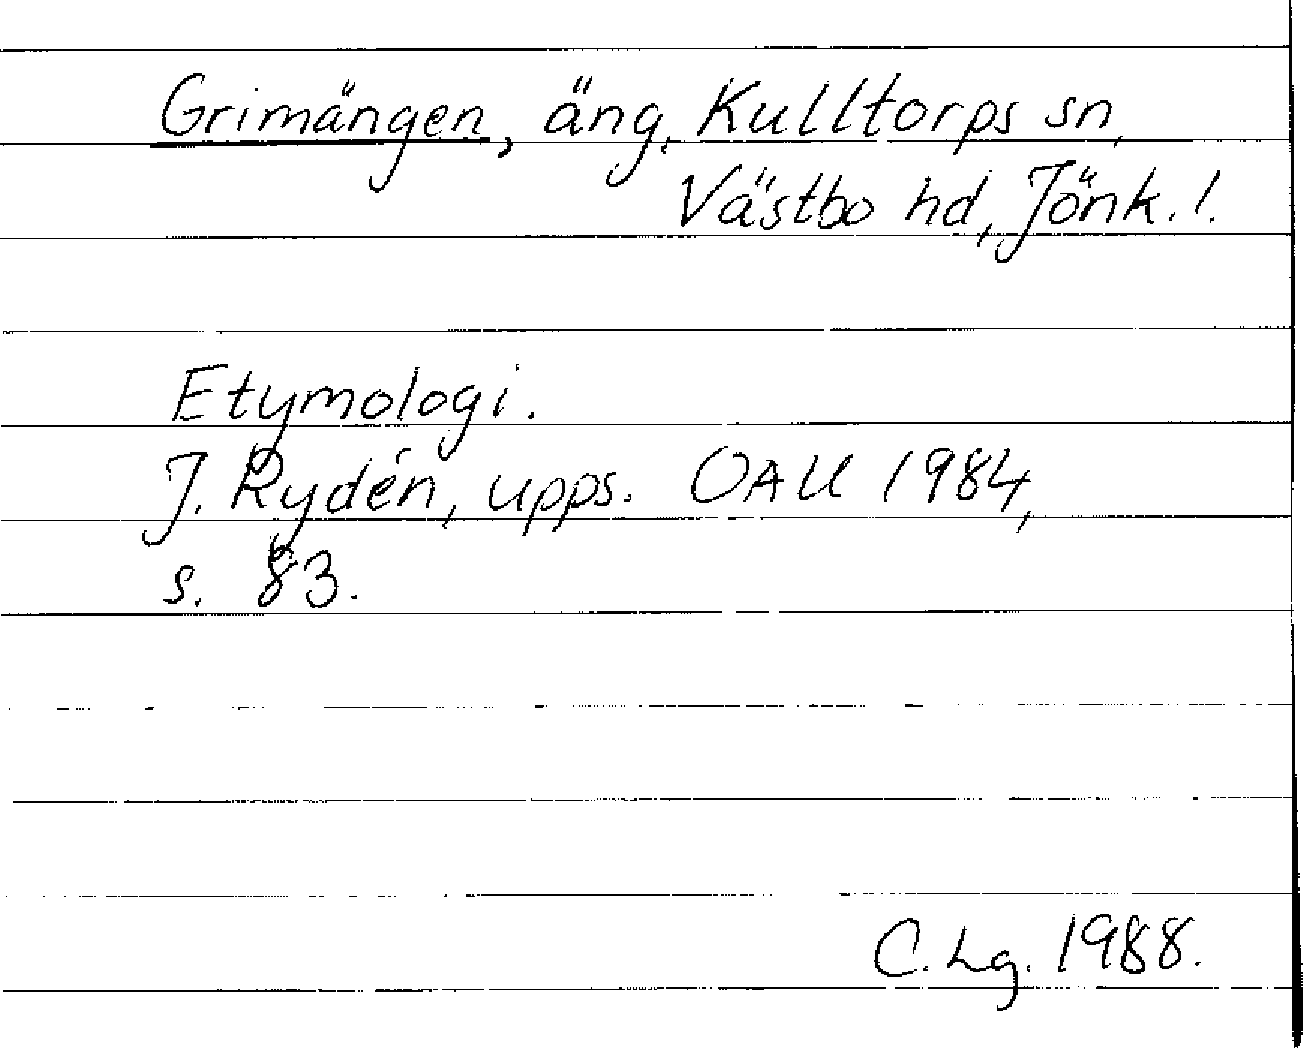 Grimängen, äng, Kulltorps sn,
Västbo hd, Jönk. l.
Etymologi.
J. Rydén, upps. OAU 1984,
s. 83.
C. Lg. 1988.